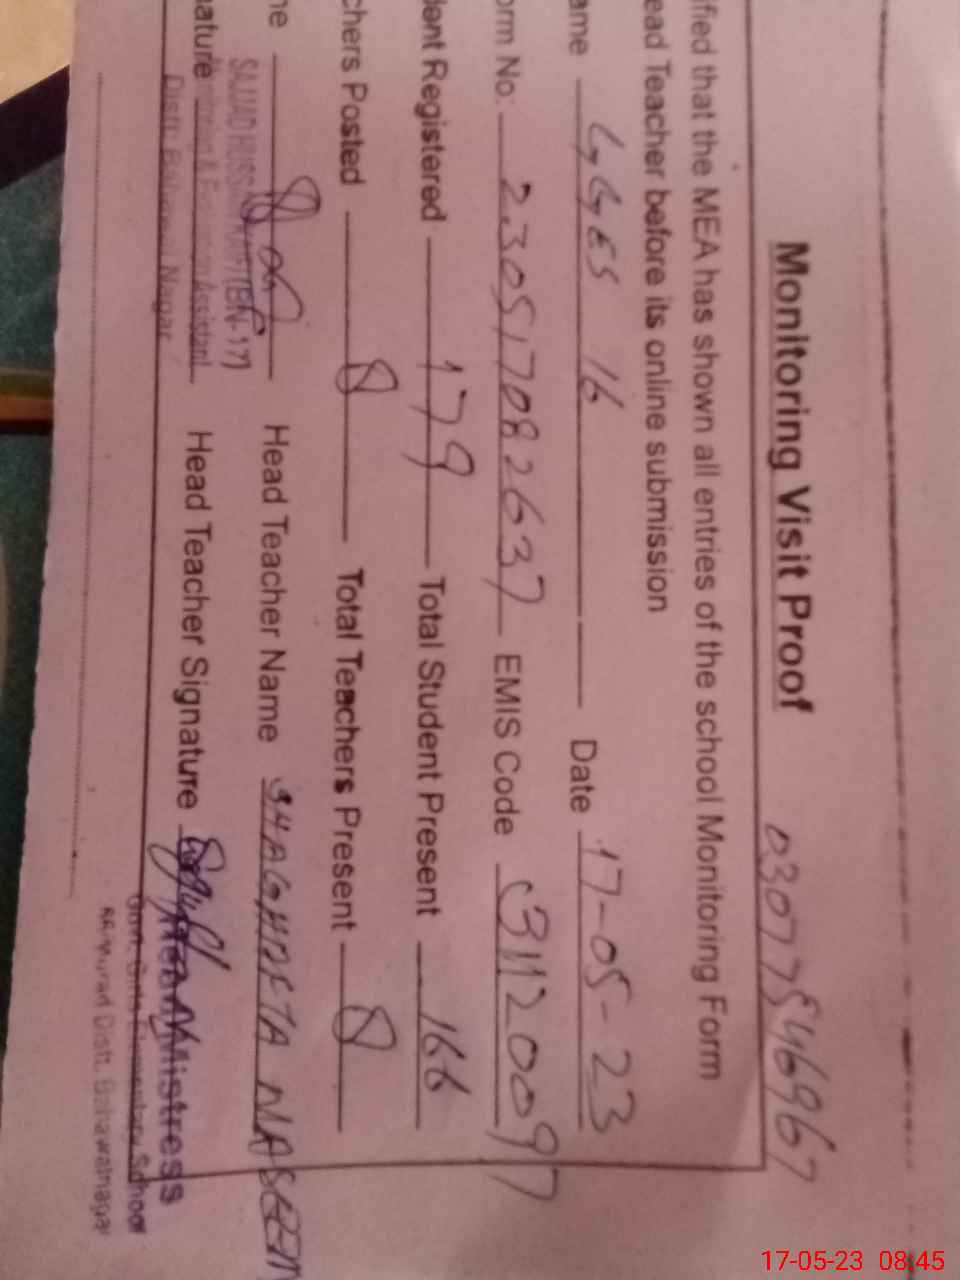 Monitoring Visit Proof 03077546967
ified that the MEA has shown all entries of the school Monitoring Form
ead Teacher before its online submission
ame GGES 16 Date 17-05-23
orm No: 230517082637 EMIS Code 31120097
dent Registered 179 Total Student Present 166
chers Posted 8 Total Teachers Present 8
me Head Teacher Name SHAGHUFTA NASEEM
SAJJAD HUSSAIN (BN-17)
nature Head Teacher Signature
Monitoring & Evaluation Assistant
Distt. Bahawal Nagar
Head Mistress
Govt. Girls Elementary School
Murad Distt. Bahawalnagar
17-05-23 08:45